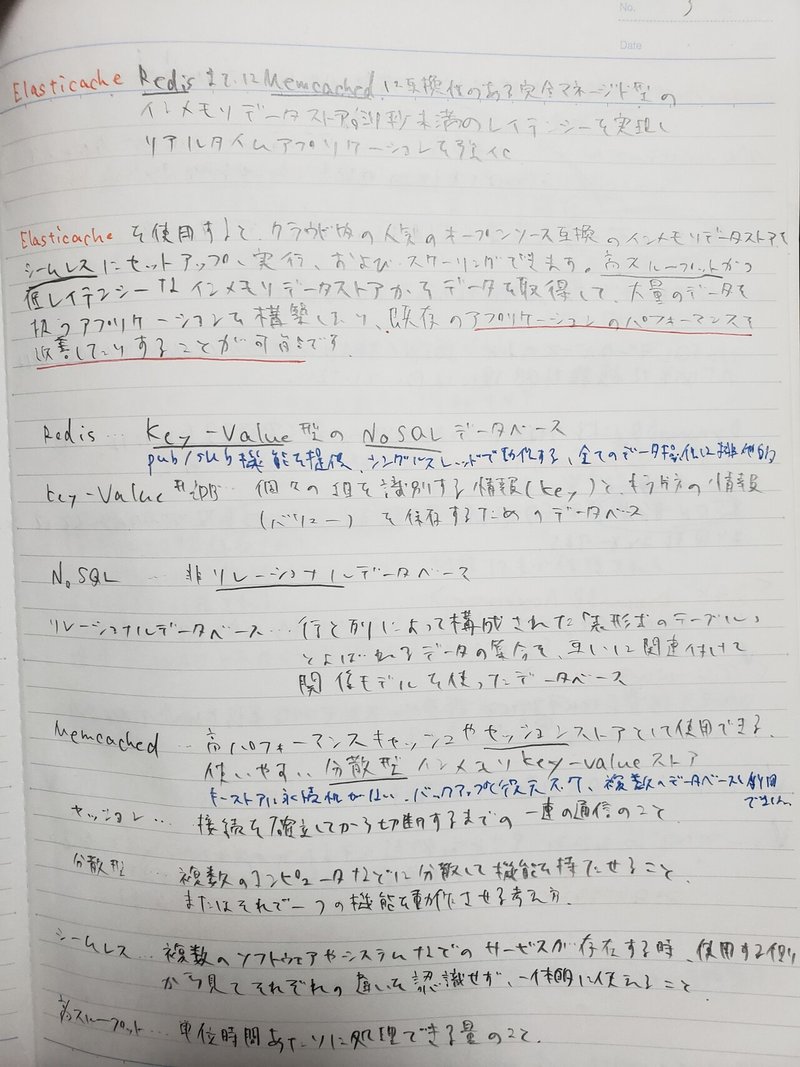 No. 3
Date
Elasticache Redis または Memcached に互換性のある完全マネージド型の
インメモリデータストア。ミリ秒未満のレイテンシーを実現し
リアルタイムアプリケーションを強化
Elasticache を使用すると、クラウド版の人気のオープンソース互換のインメモリデータストアを
シームレスにセットアップ、実行、およびスケーリングできます。高スループットかつ
低レイテンシーなインメモリデータストアからデータを取得して、大量のデータを
扱うアプリケーションを構築したり、既存のアプリケーションのパフォーマンスを
改善したりすることが可能です。
Redis … Key-Value型の NoSQL データベース
pub/sub機能を提供、シングルスレッドで動作する、全てのデータ操作は排他的
Key-Value型DB… 個々の項を識別する情報(key)と、もう片方の情報
(バリュー) を保存するためのデータベース
NoSQL … 非リレーショナルデータベース
リレーショナルデータベース … 行と列によって構成された「表形式のテーブル」
とよばれるデータの集合を、互いに関連付けて
関係モデルを使ったデータベース
Memcached … 高パフォーマンスキャッシュやセッションストアとして使用できる、
使いやすい、分散型インメモリ key-value ストア
キーストアに永続性がない、バックアップ、複数のデータベースも利用
できません
セッション … 接続を確立してから切断するまでの一連の通信のこと
分散型 … 複数のコンピュータなどに分散して機能を持たせること、
またはそれで一つの機能を動作させる考え方
シームレス … 複数のソフトウェアやシステムなどでのサービスが存在する時、使用する側
から見てそれぞれの違いを認識せず、一体的に使えること
高スループット … 単位時間あたりに処理できる量のこと。